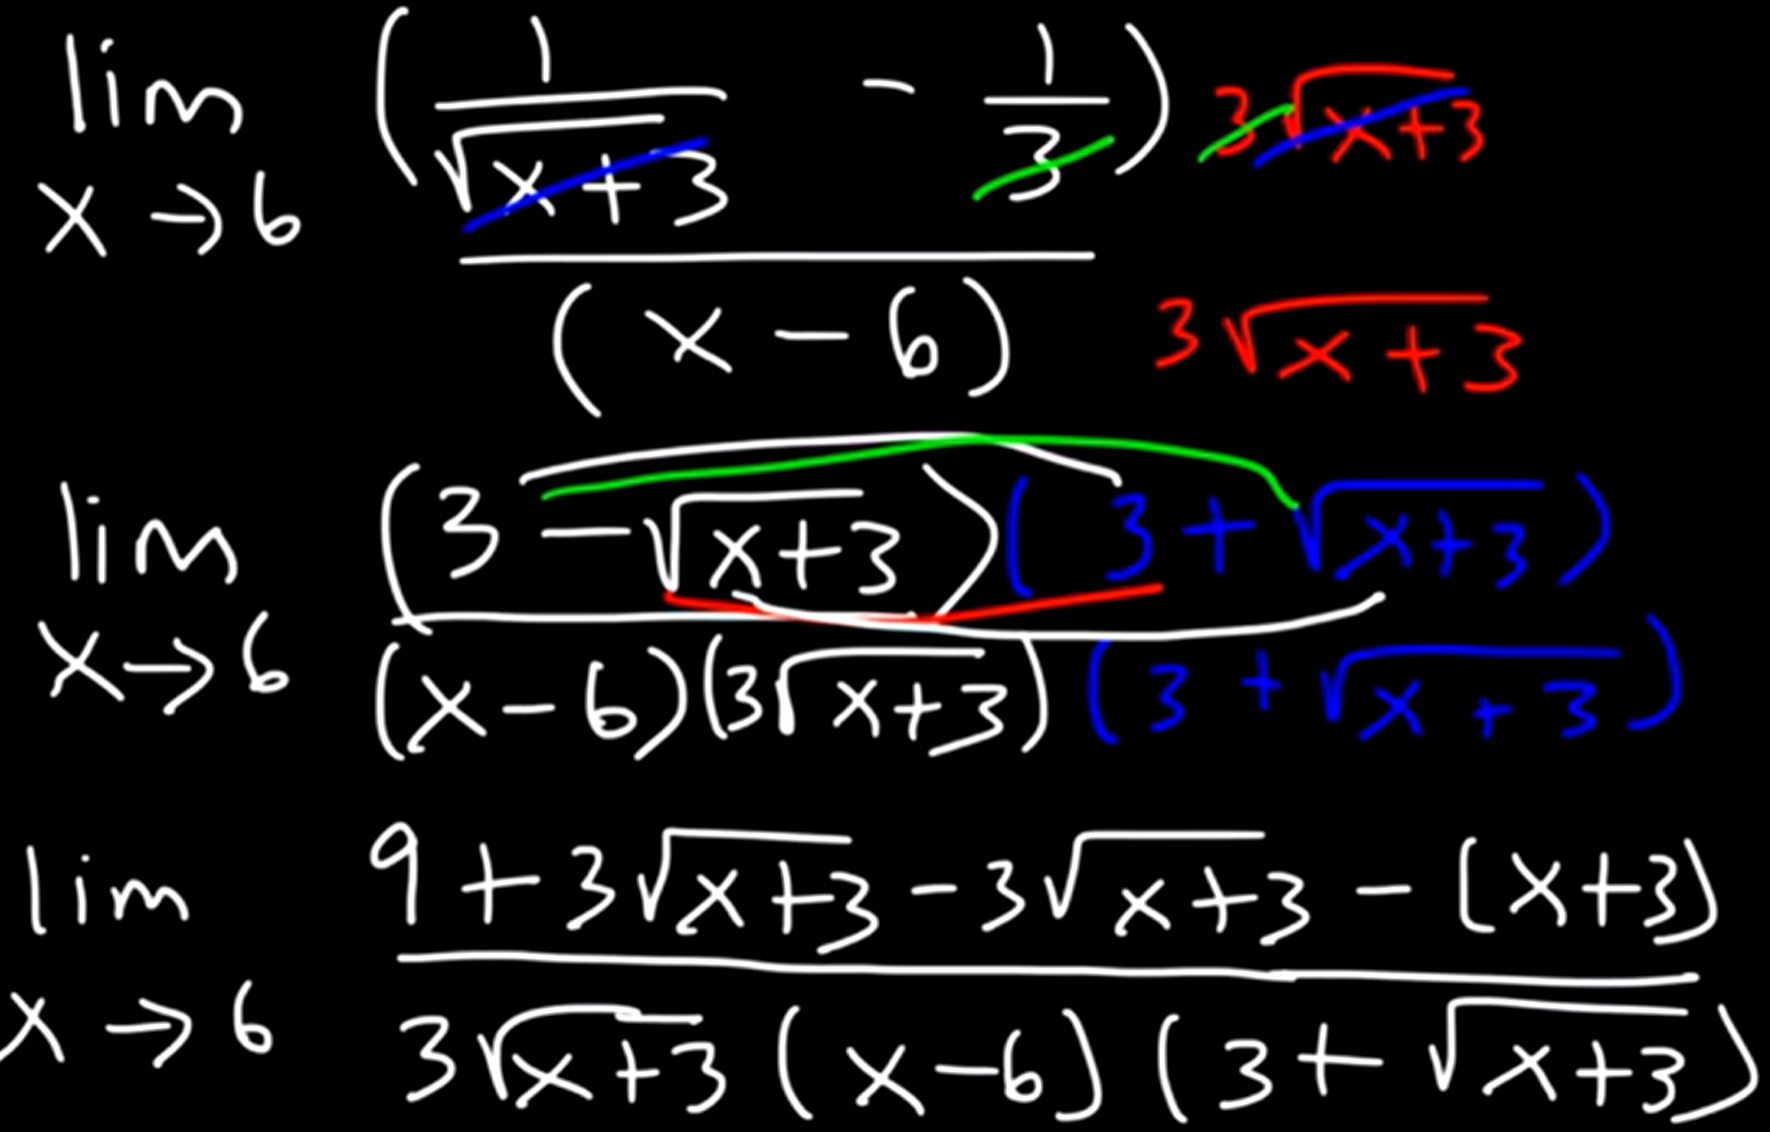 lim x→6 (1/√(x+3) - 1/3) 3√(x+3) / (x - 6) 3√(x+3)
lim x→6 (3 - √(x+3))(3 + √(x+3)) / (x - 6)(3√(x+3))(3 + √(x+3))
lim x→6 9 + 3√(x+3) - 3√(x+3) - (x+3) / 3√(x+3) (x - 6) (3 + √(x+3))